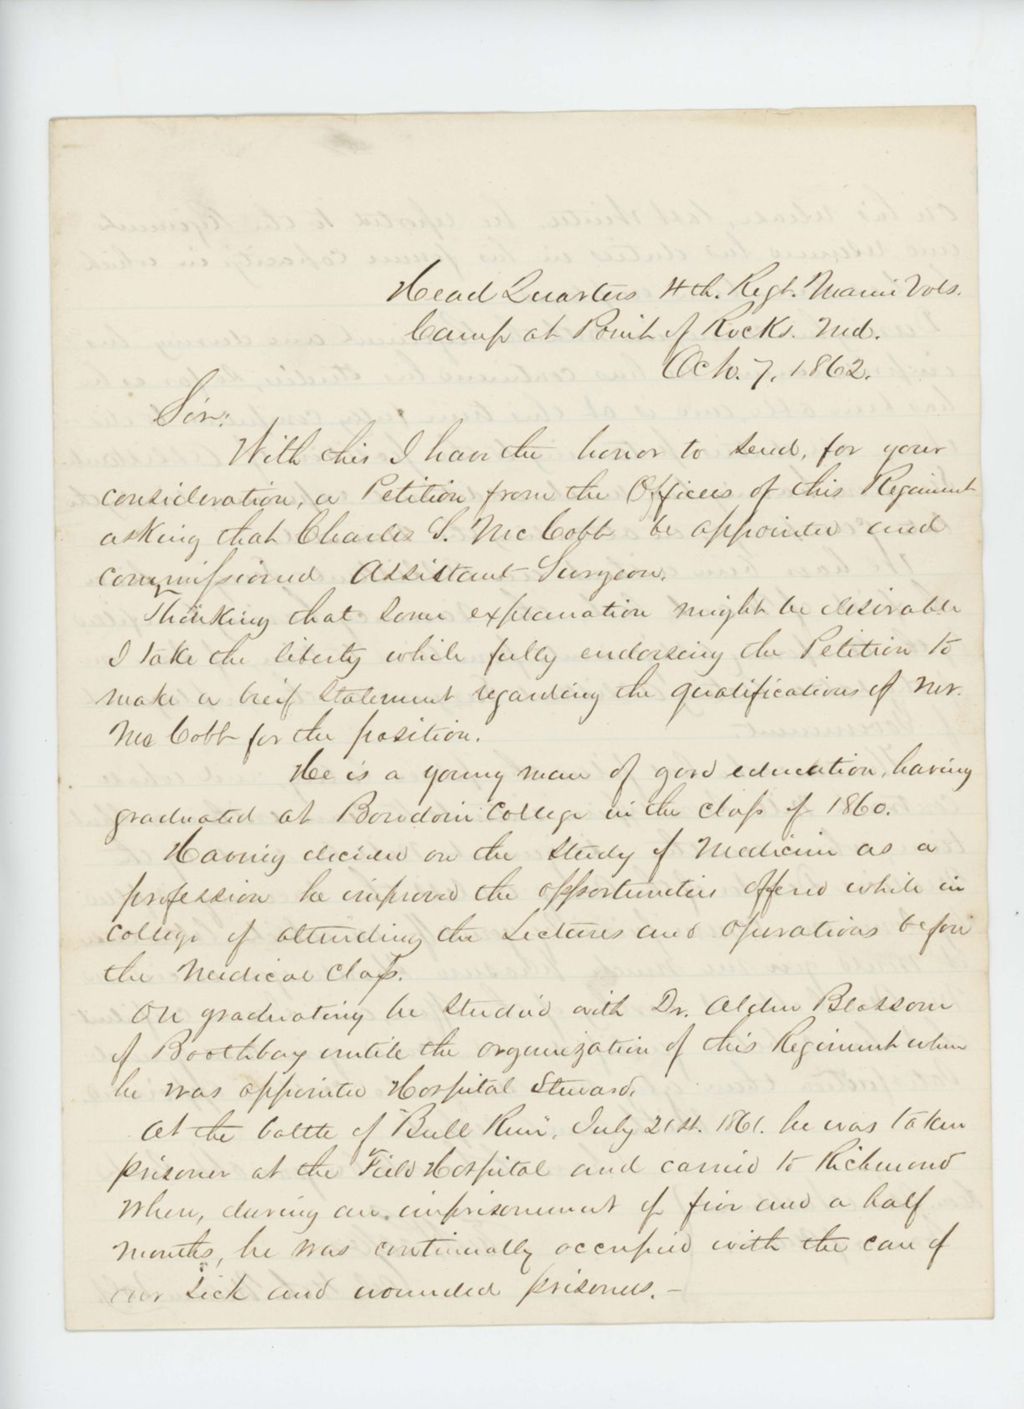 Head Quarters 4th. Regt. Maine Vols.
Camp at Point of Rocks. Md.
Oct. 7, 1862.
Sir:
With this I have the honor to send, for your
consideration, a Petition from the Officers of this Regiment
asking that Charles S. McCobb be appointed and
commissioned Assistant Surgeon.
Thinking that some explanation might be desirable
I take the liberty while fully endorsing the Petition to
make a breif statement regarding the qualifications of Mr.
McCobb for the position.
He is a young man of good education, having
graduated at Bowdoin College in the class of 1860.
Having decided on the study of Medicine as a
profession he improved the opportunities offered while in
College of attending the Lectures and Operations before
the Medical Class.
On graduating he studied with Dr. Alden Blossom
of Boothbay untill the organization of this Regiment when
he was appointed Hospital Steward.
At the battle of "Bull Run", July 21st. 1861. he was taken
prisoner at the Field Hospital and carried to Richmond
when, during an imprisonment of five and a half
months, he was continually occupied with the care of
our sick and wounded prisoners. —